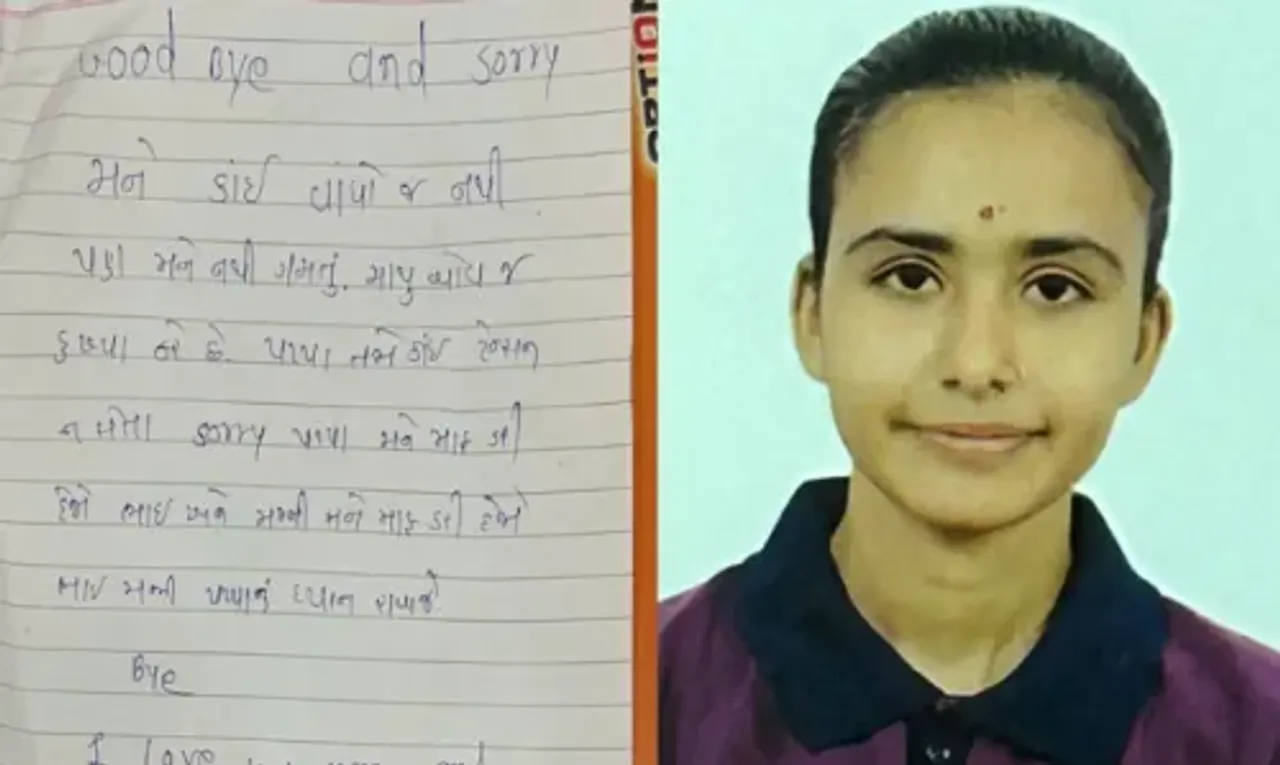 Good Bye and Sorry
મને કાંઈ વાંધો જ નથી
પણ મને નથી ગમતું. માથુ જ
દુખ્યા કરે છે. પપ્પા તમે કાંઈ ટેન્સન
ન લેતા Sorry પપ્પા મને માફ કરી
દેજો ભાઈ અને મમ્મી મને માફ કરી દેજો
ભાઈ મમ્મી પપ્પાનું ધ્યાન રાખજે
Bye
I love